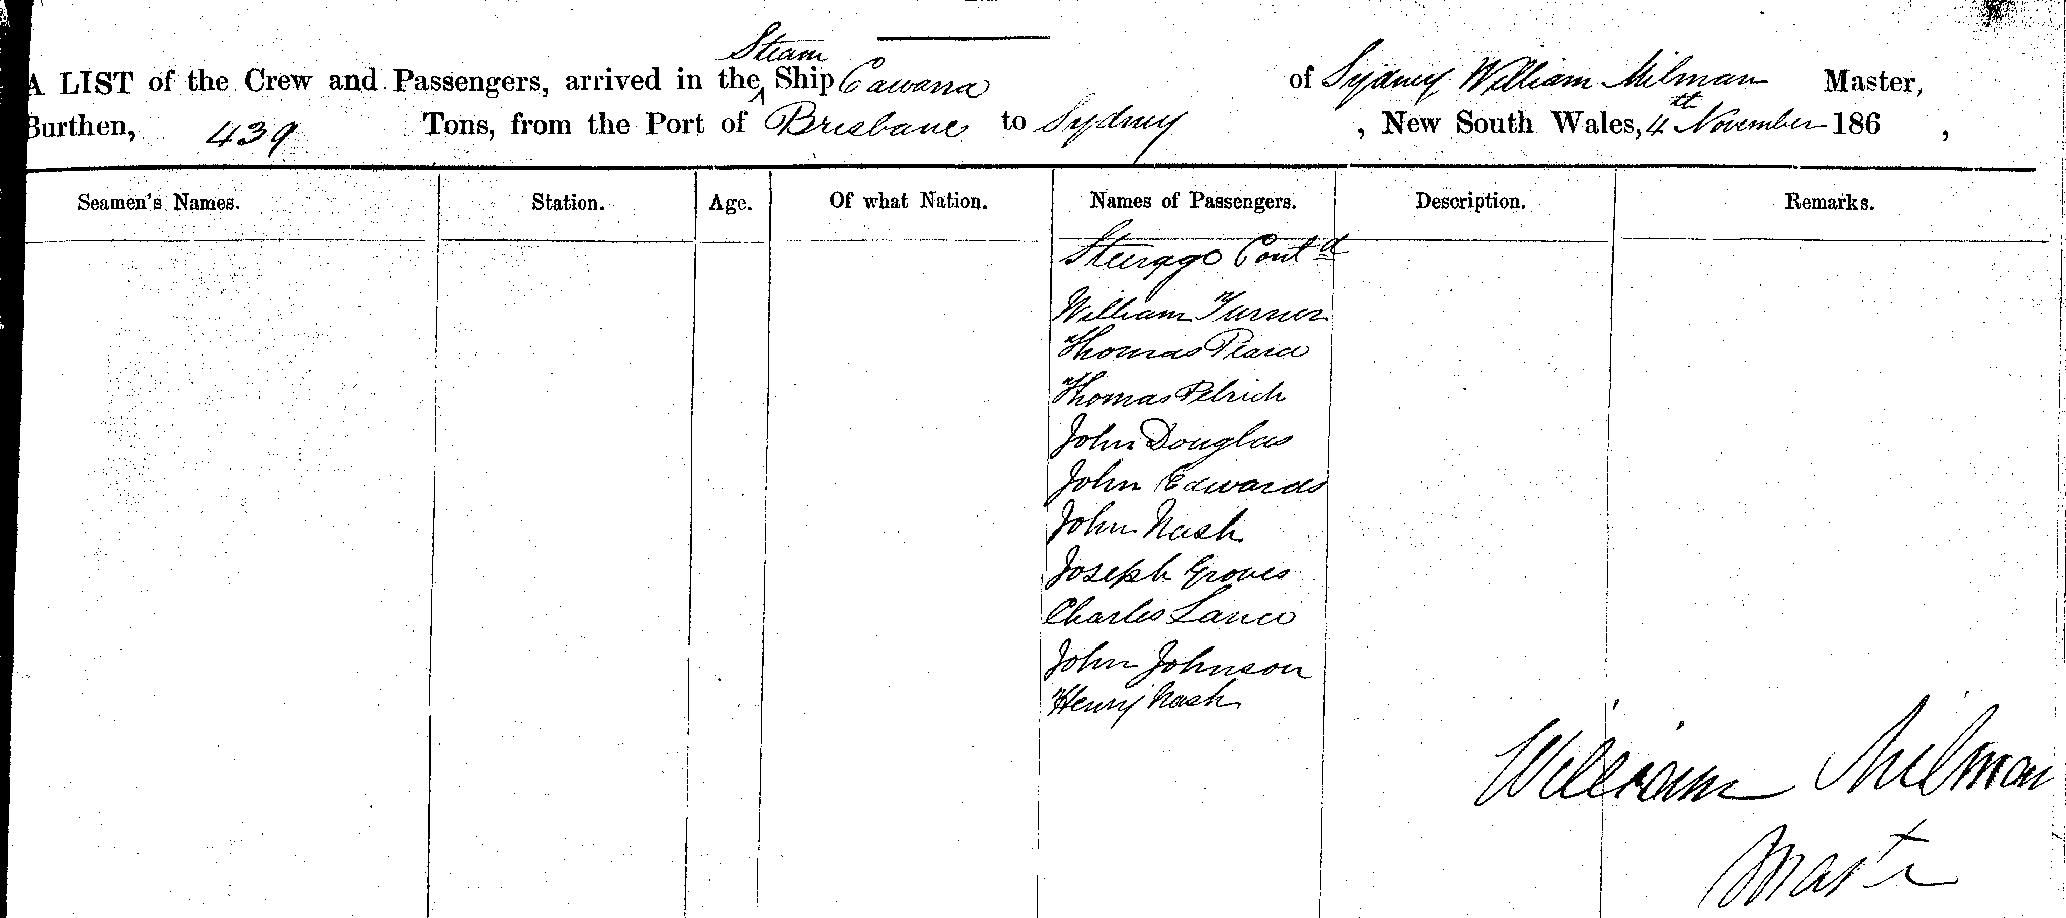 A LIST of the Crew and Passengers, arrived in the Steam Ship Cawarra of Sydney William Milman Master,
Burthen, 439 Tons, from the Port of Brisbane to Sydney, New South Wales, 4th November 186 ,
Seamen's Names. Station. Age. Of what Nation. Names of Passengers. Description. Remarks.
Steerage Contd
William Turner
Thomas Peard
Thomas Petrich
John Douglas
John Edwards
John Nash
Joseph Groves
Charles Lance
John Johnson
Henry Nash
William Milman
Master